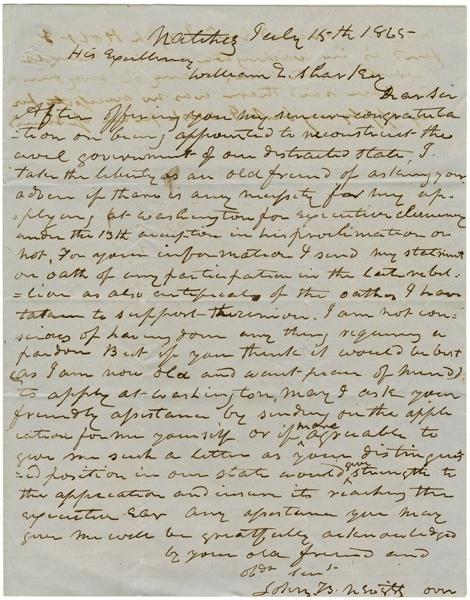 Natchez July 15th 1865
His Excellency
William L. Sharkey
Dear Sir
After offering you my sincere congratula
=tion on being appointed to reconstruct the
civil government of our distracted State, I
take the liberty as an old friend of asking your
advice if there is any necessity for my ap-
plying at Washington for executive clemency
under the 13th exception in his proclimation or
not, For your information I send my statement
on oath of my participation in the late rebel-
=lion as also certificate of the oaths I have
taken to support the union. I am not con-
scious of having done any thing requiring a
pardon But if you think it would be best
as I am now old and want peace of mind
to apply at Washington, may I ask your
friendly assistance by sending on the appli
cation for me yourself or if more agreeable to
give me such a letter as your distinguish
=ed position in our state would give strength to
the application and insure its reaching the
executive Ear any assistance you may
give me will be greatfully acknowledged
by your old friend and
obdt servt
John B. over